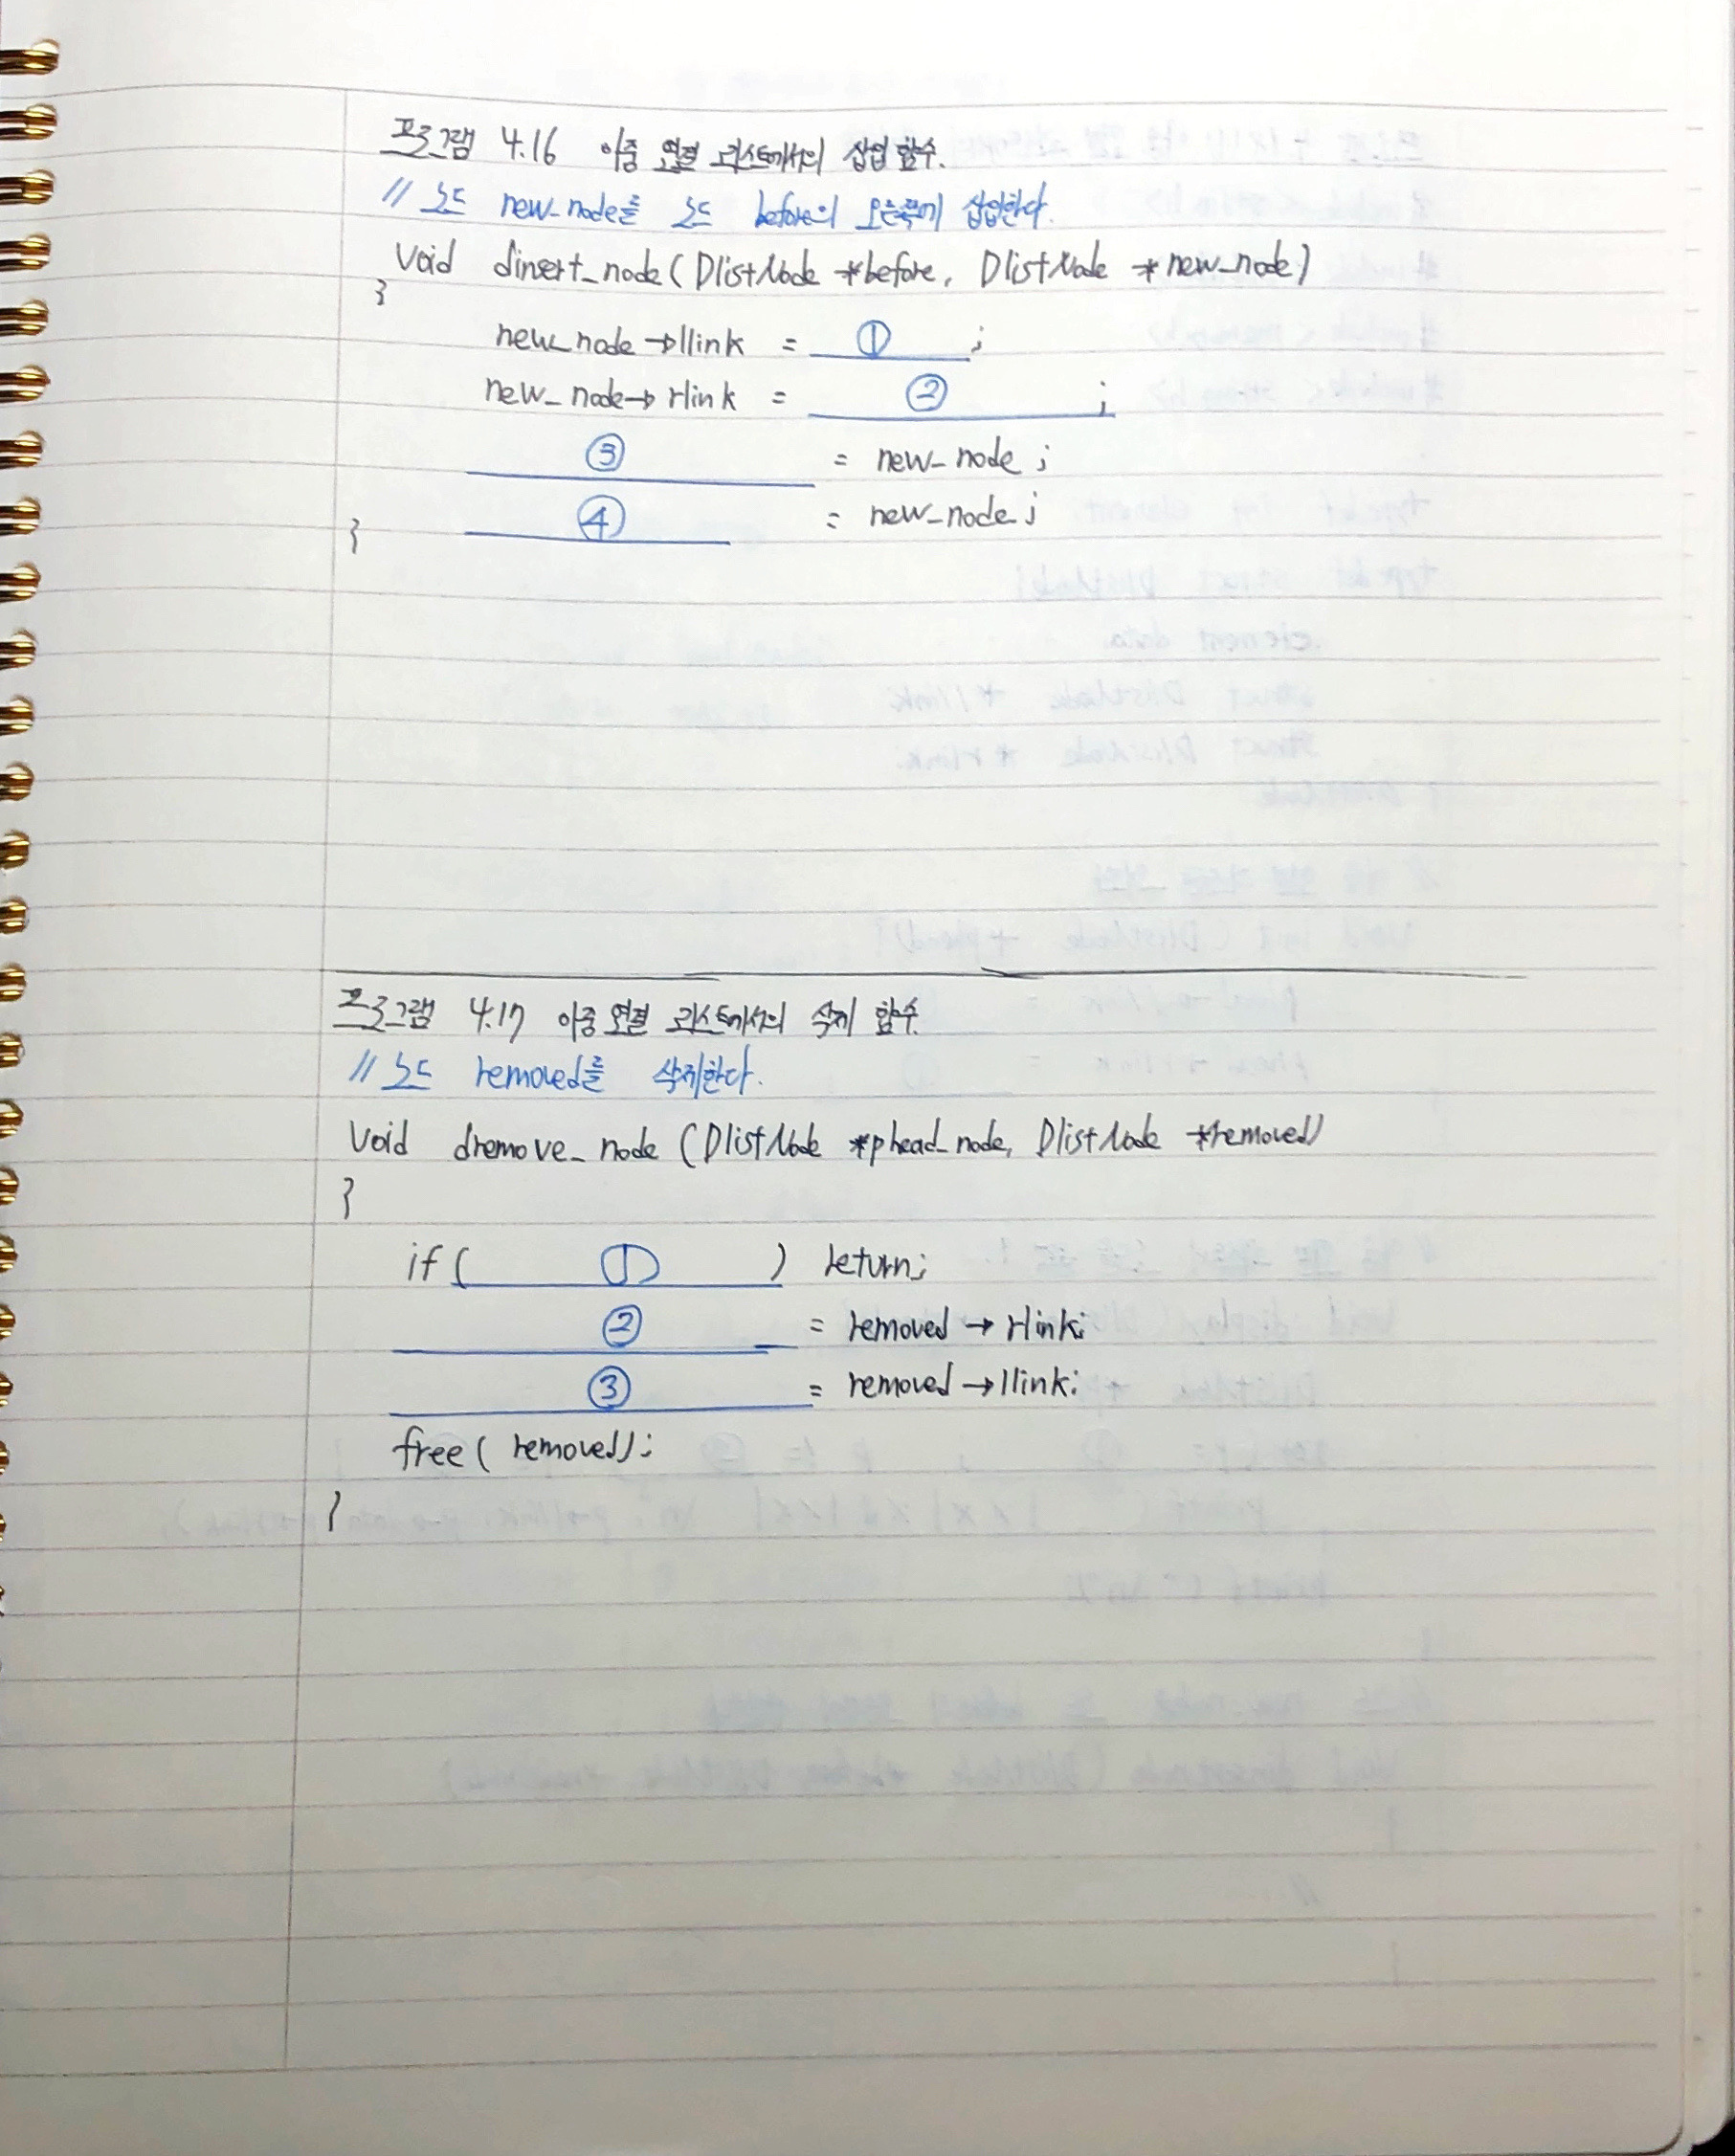 프로그램 4.16 이중 연결 리스트에서의 삽입 함수.
// 노드 new_node를 노드 before의 오른쪽에 삽입한다.
void dinsert_node(DlistNode *before, DlistNode *new_node)
{
new_node→llink = ① ;
new_node→rlink = ② ;
③ = new_node ;
④ = new_node ;
}
프로그램 4.17 이중 연결 리스트에서의 삭제 함수.
// 노드 removed를 삭제한다.
void dremove_node (DlistNode *phead_node, DlistNode *removed)
{
if( ① ) return;
② = removed → rlink;
③ = removed → llink;
free( removed);
}